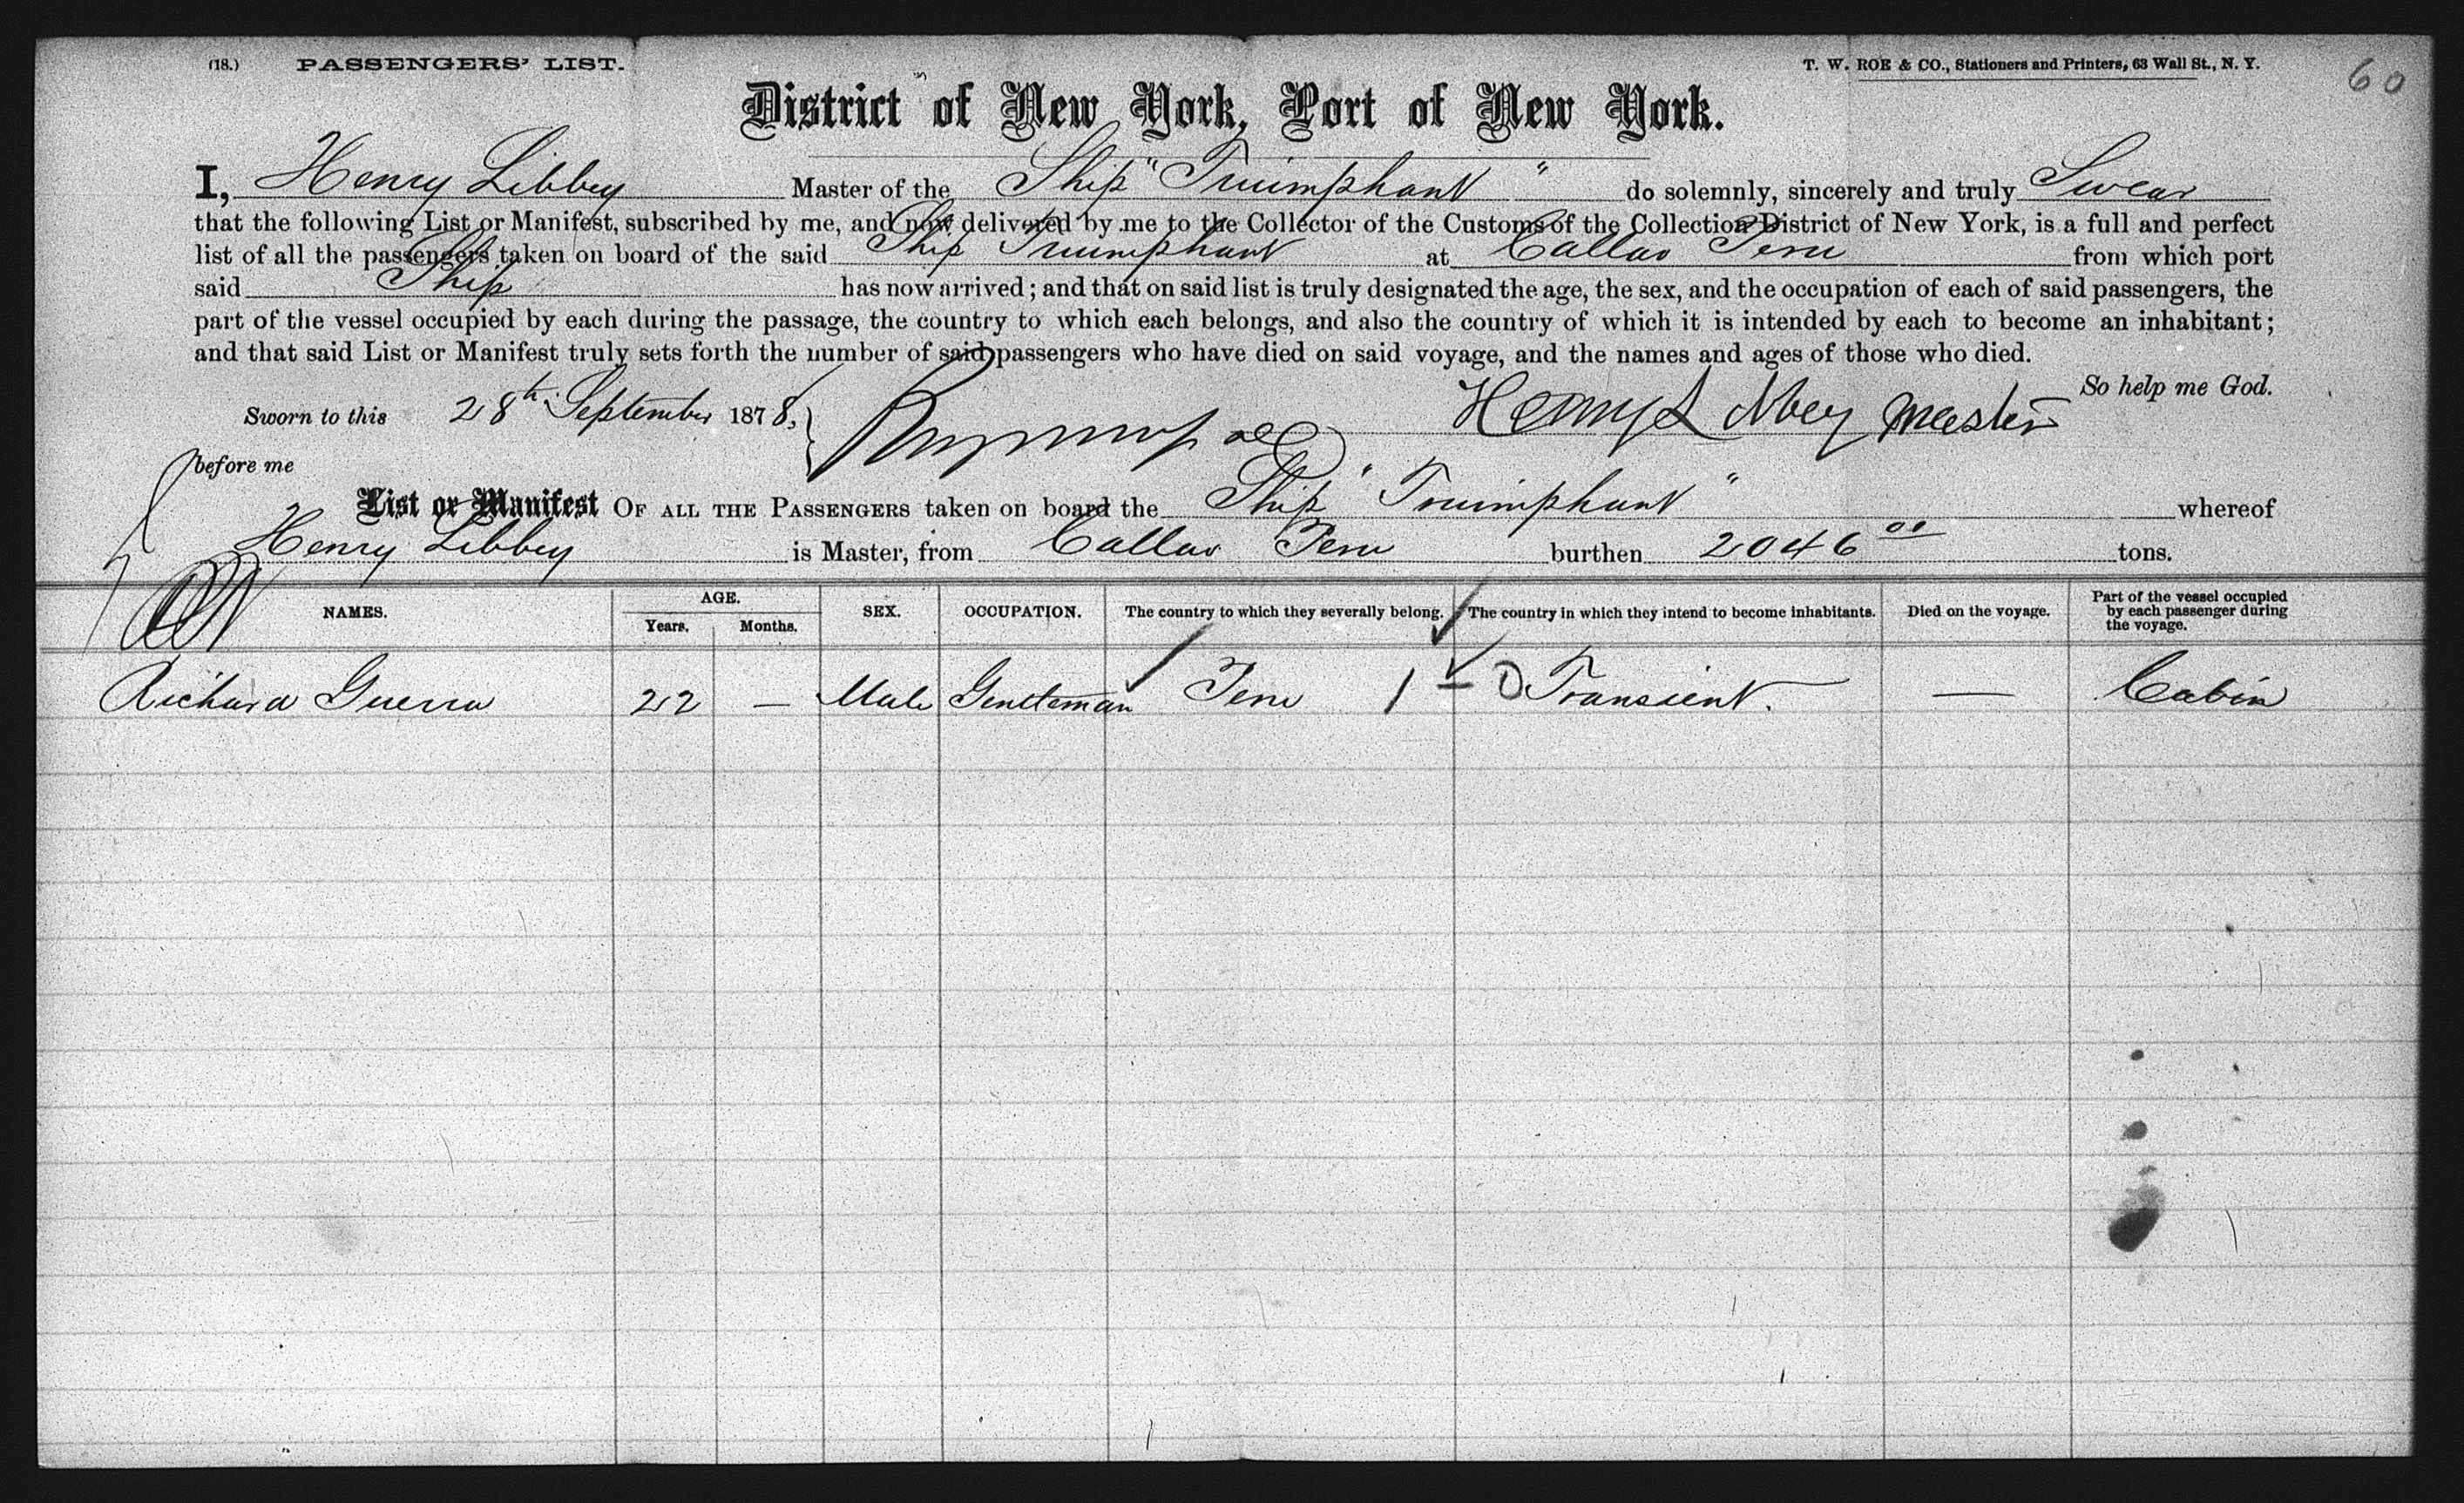 (18.) PASSENGERS' LIST. T. W. ROE & CO., Stationers and Printers, 63 Wall St., N. Y. 60
District of New York, Port of New York.
I, Henry Libbey Master of the Ship "Triumphant" do solemnly, sincerely and truly Swear
that the following List or Manifest, subscribed by me, and now delivered by me to the Collector of the Customs of the Collection District of New York, is a full and perfect
list of all the passengers taken on board of the said Ship Triumphant at Callao Peru from which port
said Ship has now arrived; and that on said list is truly designated the age, the sex, and the occupation of each of said passengers, the
part of the vessel occupied by each during the passage, the country to which each belongs, and also the country of which it is intended by each to become an inhabitant;
and that said List or Manifest truly sets forth the number of said passengers who have died on said voyage, and the names and ages of those who died.
So help me God.
Sworn to this 28th September 1878, Henry Libbey Master
before me
List or Manifest OF ALL THE PASSENGERS taken on board the Ship "Triumphant" whereof
Henry Libbey is Master, from Callao Peru burthen 2046 00 tons.
NAMES. AGE. Years. Months. SEX. OCCUPATION. The country to which they severally belong. The country in which they intend to become inhabitants. Died on the voyage. Part of the vessel occupied by each passenger during the voyage.
Richard Guerra 22 — Male Gentleman Peru 1 – Transient. — Cabin